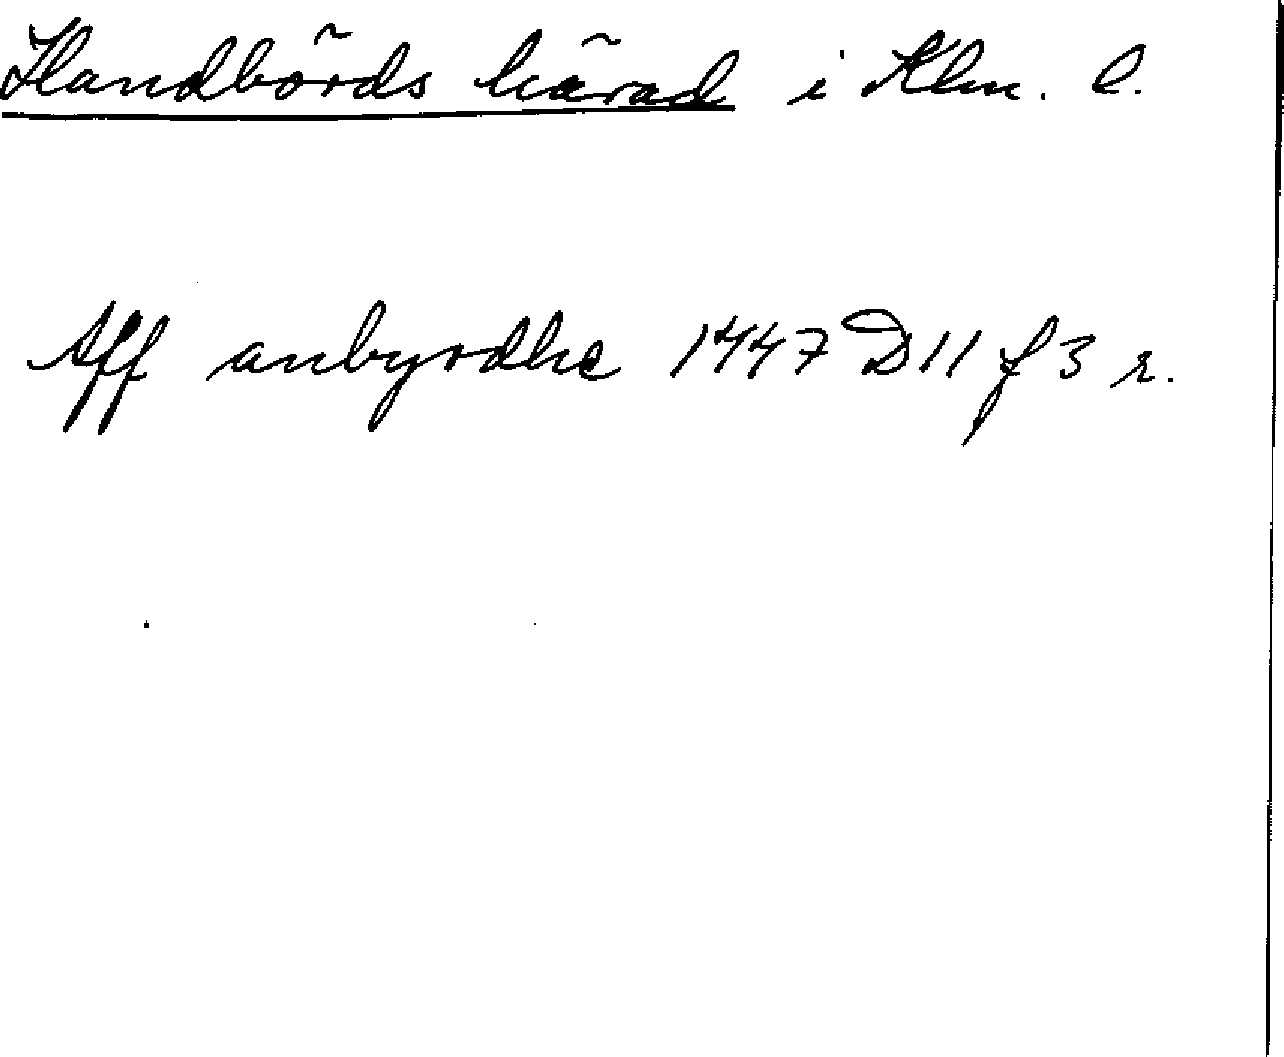 Handbörds härad i Klm. l.
Aff anbyrdhe 1447 D 11 f 3 r.